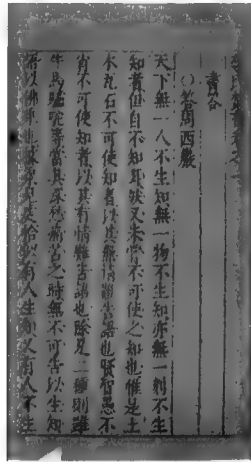 書答
答周西巖
天下無一人不生知無一物不生知亦無一刻不生
知者但自不知耳然又未嘗不可使之知也惟是土
木瓦石不可使知者以其無情難告語也賢智愚不
肖不可使知者以其有情難告語也除是二種則雖
牛馬驢駝等當其深愁痛苦之時無不可告以生知
語以佛乘也據渠見處恰似有人生知又有人不生